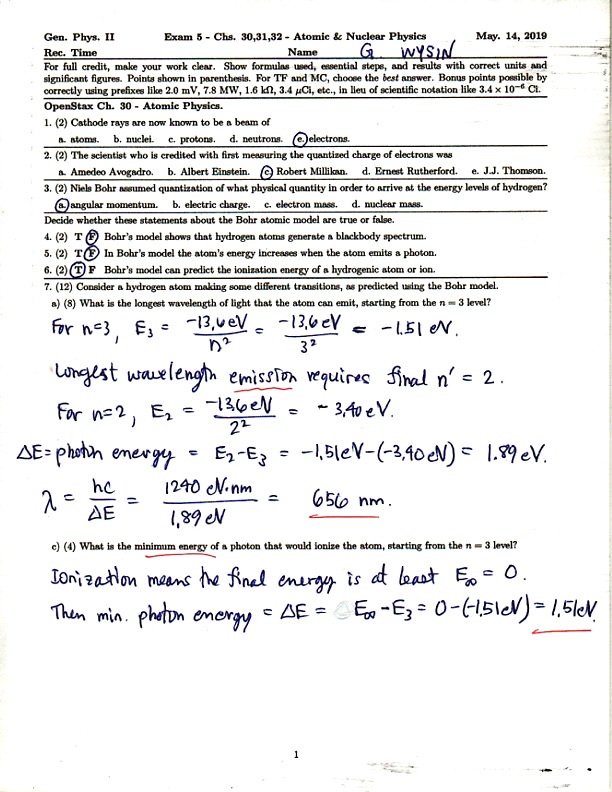 Gen. Phys. II Exam 5 - Chs. 30,31,32 - Atomic & Nuclear Physics May. 14, 2019
Rec. Time Name G. WYSIN
For full credit, make your work clear. Show formulas used, essential steps, and results with correct units and
significant figures. Points shown in parenthesis. For TF and MC, choose the best answer. Bonus points possible by
correctly using prefixes like 2.0 mV, 7.8 MW, 1.6 kΩ, 3.4 μCi, etc., in lieu of scientific notation like 3.4 × 10⁻⁶ Ci.
OpenStax Ch. 30 - Atomic Physics.
1. (2) Cathode rays are now known to be a beam of
a. atoms. b. nuclei. c. protons. d. neutrons. e. electrons.
2. (2) The scientist who is credited with first measuring the quantized charge of electrons was
a. Amedeo Avogadro. b. Albert Einstein. c. Robert Millikan. d. Ernest Rutherford. e. J.J. Thomson.
3. (2) Niels Bohr assumed quantization of what physical quantity in order to arrive at the energy levels of hydrogen?
a. angular momentum. b. electric charge. c. electron mass. d. nuclear mass.
Decide whether these statements about the Bohr atomic model are true or false.
4. (2) T F Bohr's model shows that hydrogen atoms generate a blackbody spectrum.
5. (2) T F In Bohr's model the atom's energy increases when the atom emits a photon.
6. (2) T F Bohr's model can predict the ionization energy of a hydrogenic atom or ion.
7. (12) Consider a hydrogen atom making some different transitions, as predicted using the Bohr model.
a) (8) What is the longest wavelength of light that the atom can emit, starting from the n = 3 level?
For n=3, E₃ = -13.6 eV / n² = -13.6 eV / 3² = -1.51 eV.
Longest wavelength emission requires final n' = 2.
For n=2, E₂ = -13.6 eV / 2² = -3.40 eV.
ΔE = photon energy = E₂-E₃ = -1.51eV-(-3.40 eV) = 1.89 eV.
λ = hc / ΔE = 1240 eV·nm / 1.89 eV = 656 nm.
c) (4) What is the minimum energy of a photon that would ionize the atom, starting from the n = 3 level?
Ionization means the final energy is at least E∞ = 0.
Then min. photon energy = ΔE = E∞ - E₃ = 0-(-1.51eV) = 1.51eV.
1